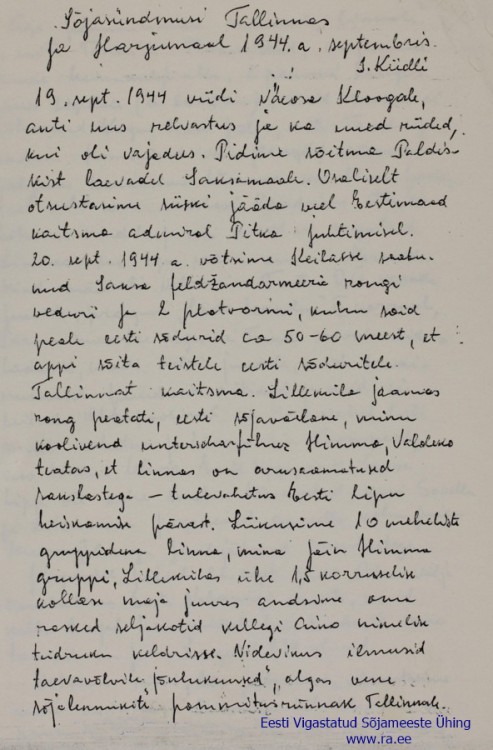 Sõjasündmusi Tallinnas
ja Harjumaal 1944.a. septembris.
I. Küdli
19. sept. 1944 viidi väeosa Kloogale,
anti uus relvastus ja ka uued riided,
kui oli vajadus. Pidime sõitma Paldis-
kist laevadel Saksamaale. Üksliselt
otsustasime siiski jääda veel Eestimaad
kaitsma admiral Pitka juhtimisel.
20. sept. 1944 a. võtsime Keilasse saabu-
nud Saksa feldžandarmeeria rongi
veduri ja 2 platvormi, kuhu said
peale eesti sõdurid ca 50-60 meest, et
appi sõita teistele eesti sõduritele.
Tallinnat kaitsma. Lilleküla jaamas
rong peatati, eesti sõjaväelane, minu
koolivend unterscharführer Himma, Valdeko
teatas, et linnas on arusaamatused
sakslastega – tulevahetus Eesti lipu
heiskamise pärast. Liikusime 10 meheliste
gruppidena linna, mina jäin Himma
gruppi, Lillekülas ühe 1,5 korruselise
kollase maja juures andsime oma
rasked seljakotid kellegi Aino nimelise
tüdruku keldrisse. Videvikus ilmusid
taevavõlvile "jõulukuused", algas vene
"sõjalennukite" pommitusrünnak Tallinnale.
Eesti Vigastatud Sõjameeste Ühing
www.ra.ee